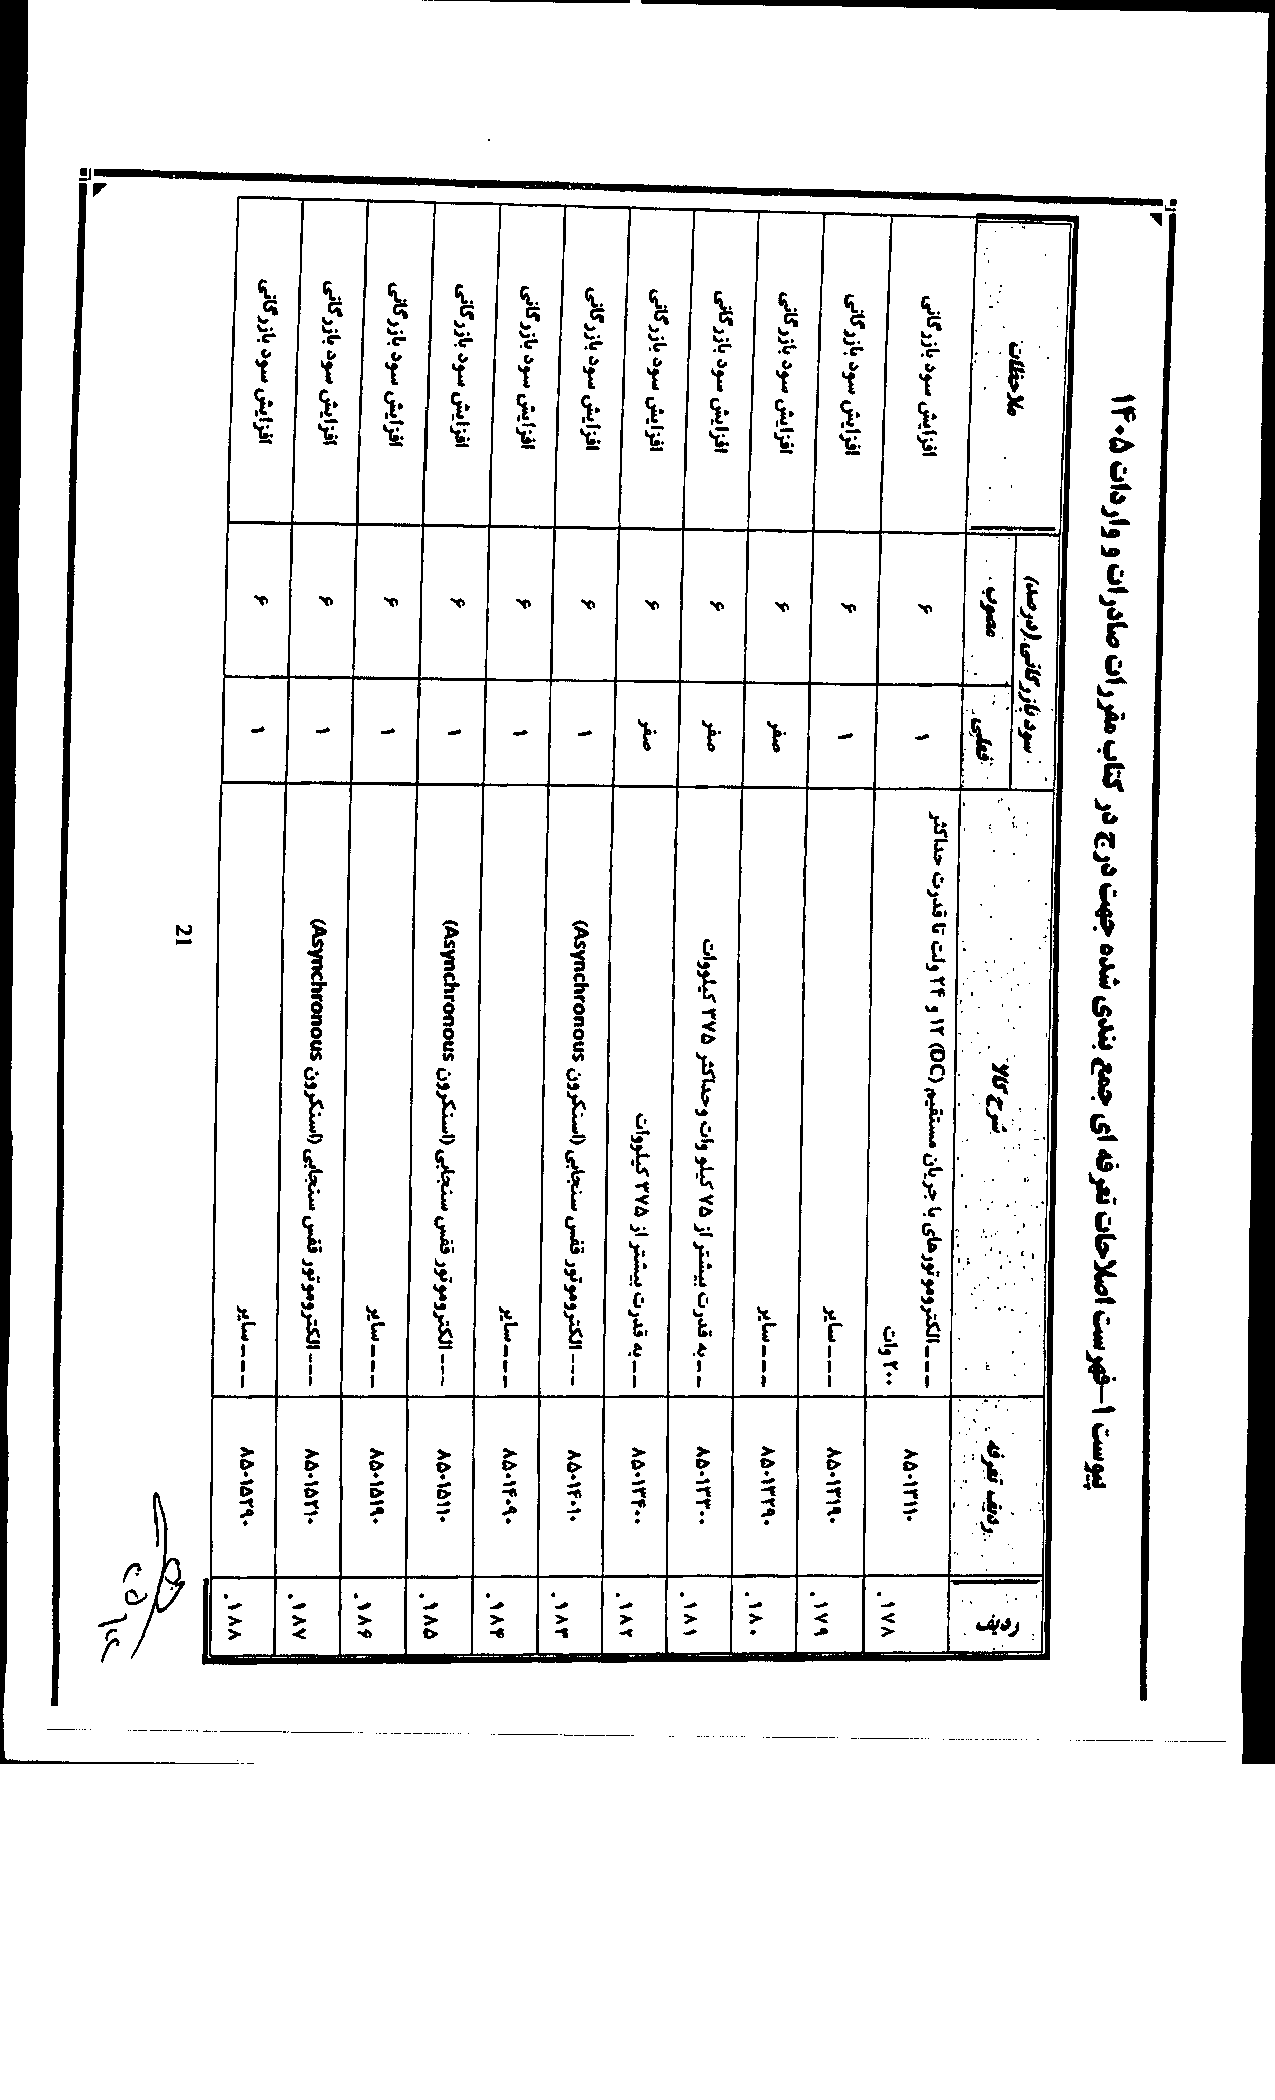 پیوست ۱-فهرست اصلاحات تعرفه ای جمع بندی شده جهت درج در کتاب مقررات صادرات و واردات ۱۴۰۵
ردیف ردیف تعرفه شرح کالا سود بازرگانی (درصد) ملاحظات
فعلی مصوب
۱۷۸. ۸۵۰۱۳۱۱۰ ---الکتروموتورهای با جریان مستقیم (DC) ۱۲ و ۲۴ ولت تا قدرت حداکثر ۱ ۶ افزایش سود بازرگانی
۲۰۰ وات
۱۷۹. ۸۵۰۱۳۱۹۰ ---سایر ۱ ۶ افزایش سود بازرگانی
۱۸۰. ۸۵۰۱۳۲۹۰ ---سایر صفر ۶ افزایش سود بازرگانی
۱۸۱. ۸۵۰۱۳۳۰۰ --به قدرت بیشتر از ۷۵ کیلو وات وحداکثر ۳۷۵ کیلووات صفر ۶ افزایش سود بازرگانی
۱۸۲. ۸۵۰۱۳۴۰۰ --به قدرت بیشتر از ۳۷۵ کیلووات صفر ۶ افزایش سود بازرگانی
۱۸۳. ۸۵۰۱۴۰۱۰ --- الکتروموتور قفس سنجابی (اسنکرون Asynchronous) ۱ ۶ افزایش سود بازرگانی
۱۸۴. ۸۵۰۱۴۰۹۰ ---سایر ۱ ۶ افزایش سود بازرگانی
۱۸۵. ۸۵۰۱۵۱۱۰ --- الکتروموتور قفس سنجابی (اسنکرون Asynchronous) ۱ ۶ افزایش سود بازرگانی
۱۸۶. ۸۵۰۱۵۱۹۰ ---سایر ۱ ۶ افزایش سود بازرگانی
۱۸۷. ۸۵۰۱۵۲۱۰ --- الکتروموتور قفس سنجابی (اسنکرون Asynchronous) ۱ ۶ افزایش سود بازرگانی
۱۸۸. ۸۵۰۱۵۲۹۰ ---سایر ۱ ۶ افزایش سود بازرگانی
21